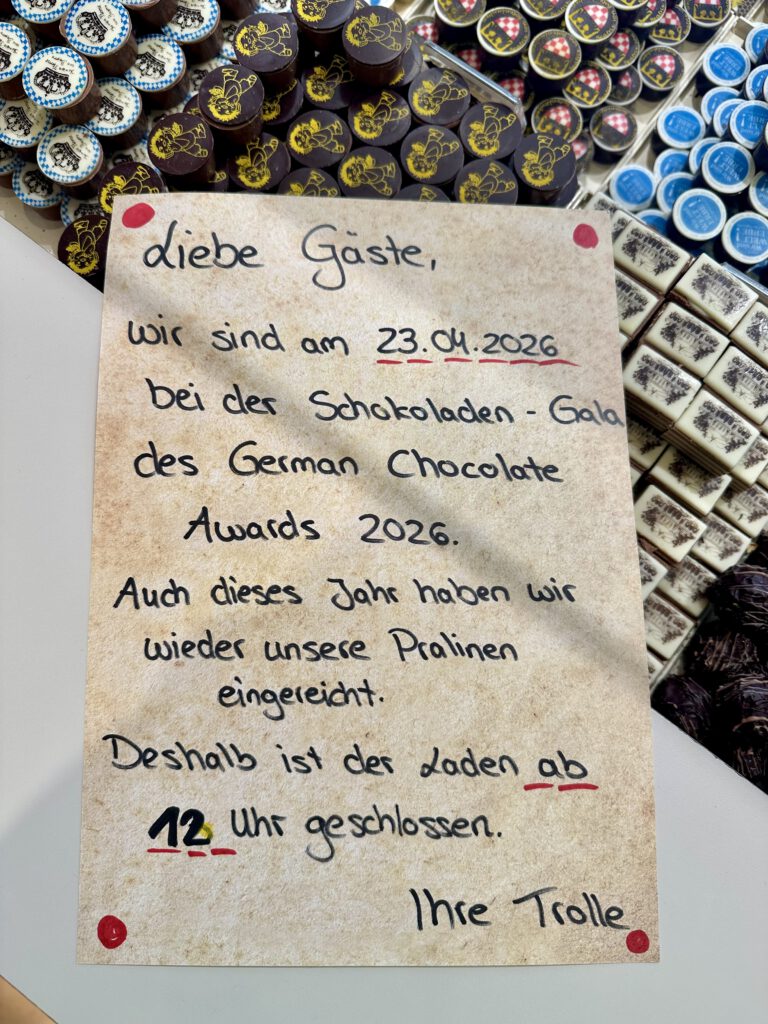 Liebe Gäste,
wir sind am 23.04.2026
bei der Schokoladen - Gala
des German Chocolate
Awards 2026.
Auch dieses Jahr haben wir
wieder unsere Pralinen
eingereicht.
Deshalb ist der Laden ab
12 Uhr geschlossen.
Ihre Trolle